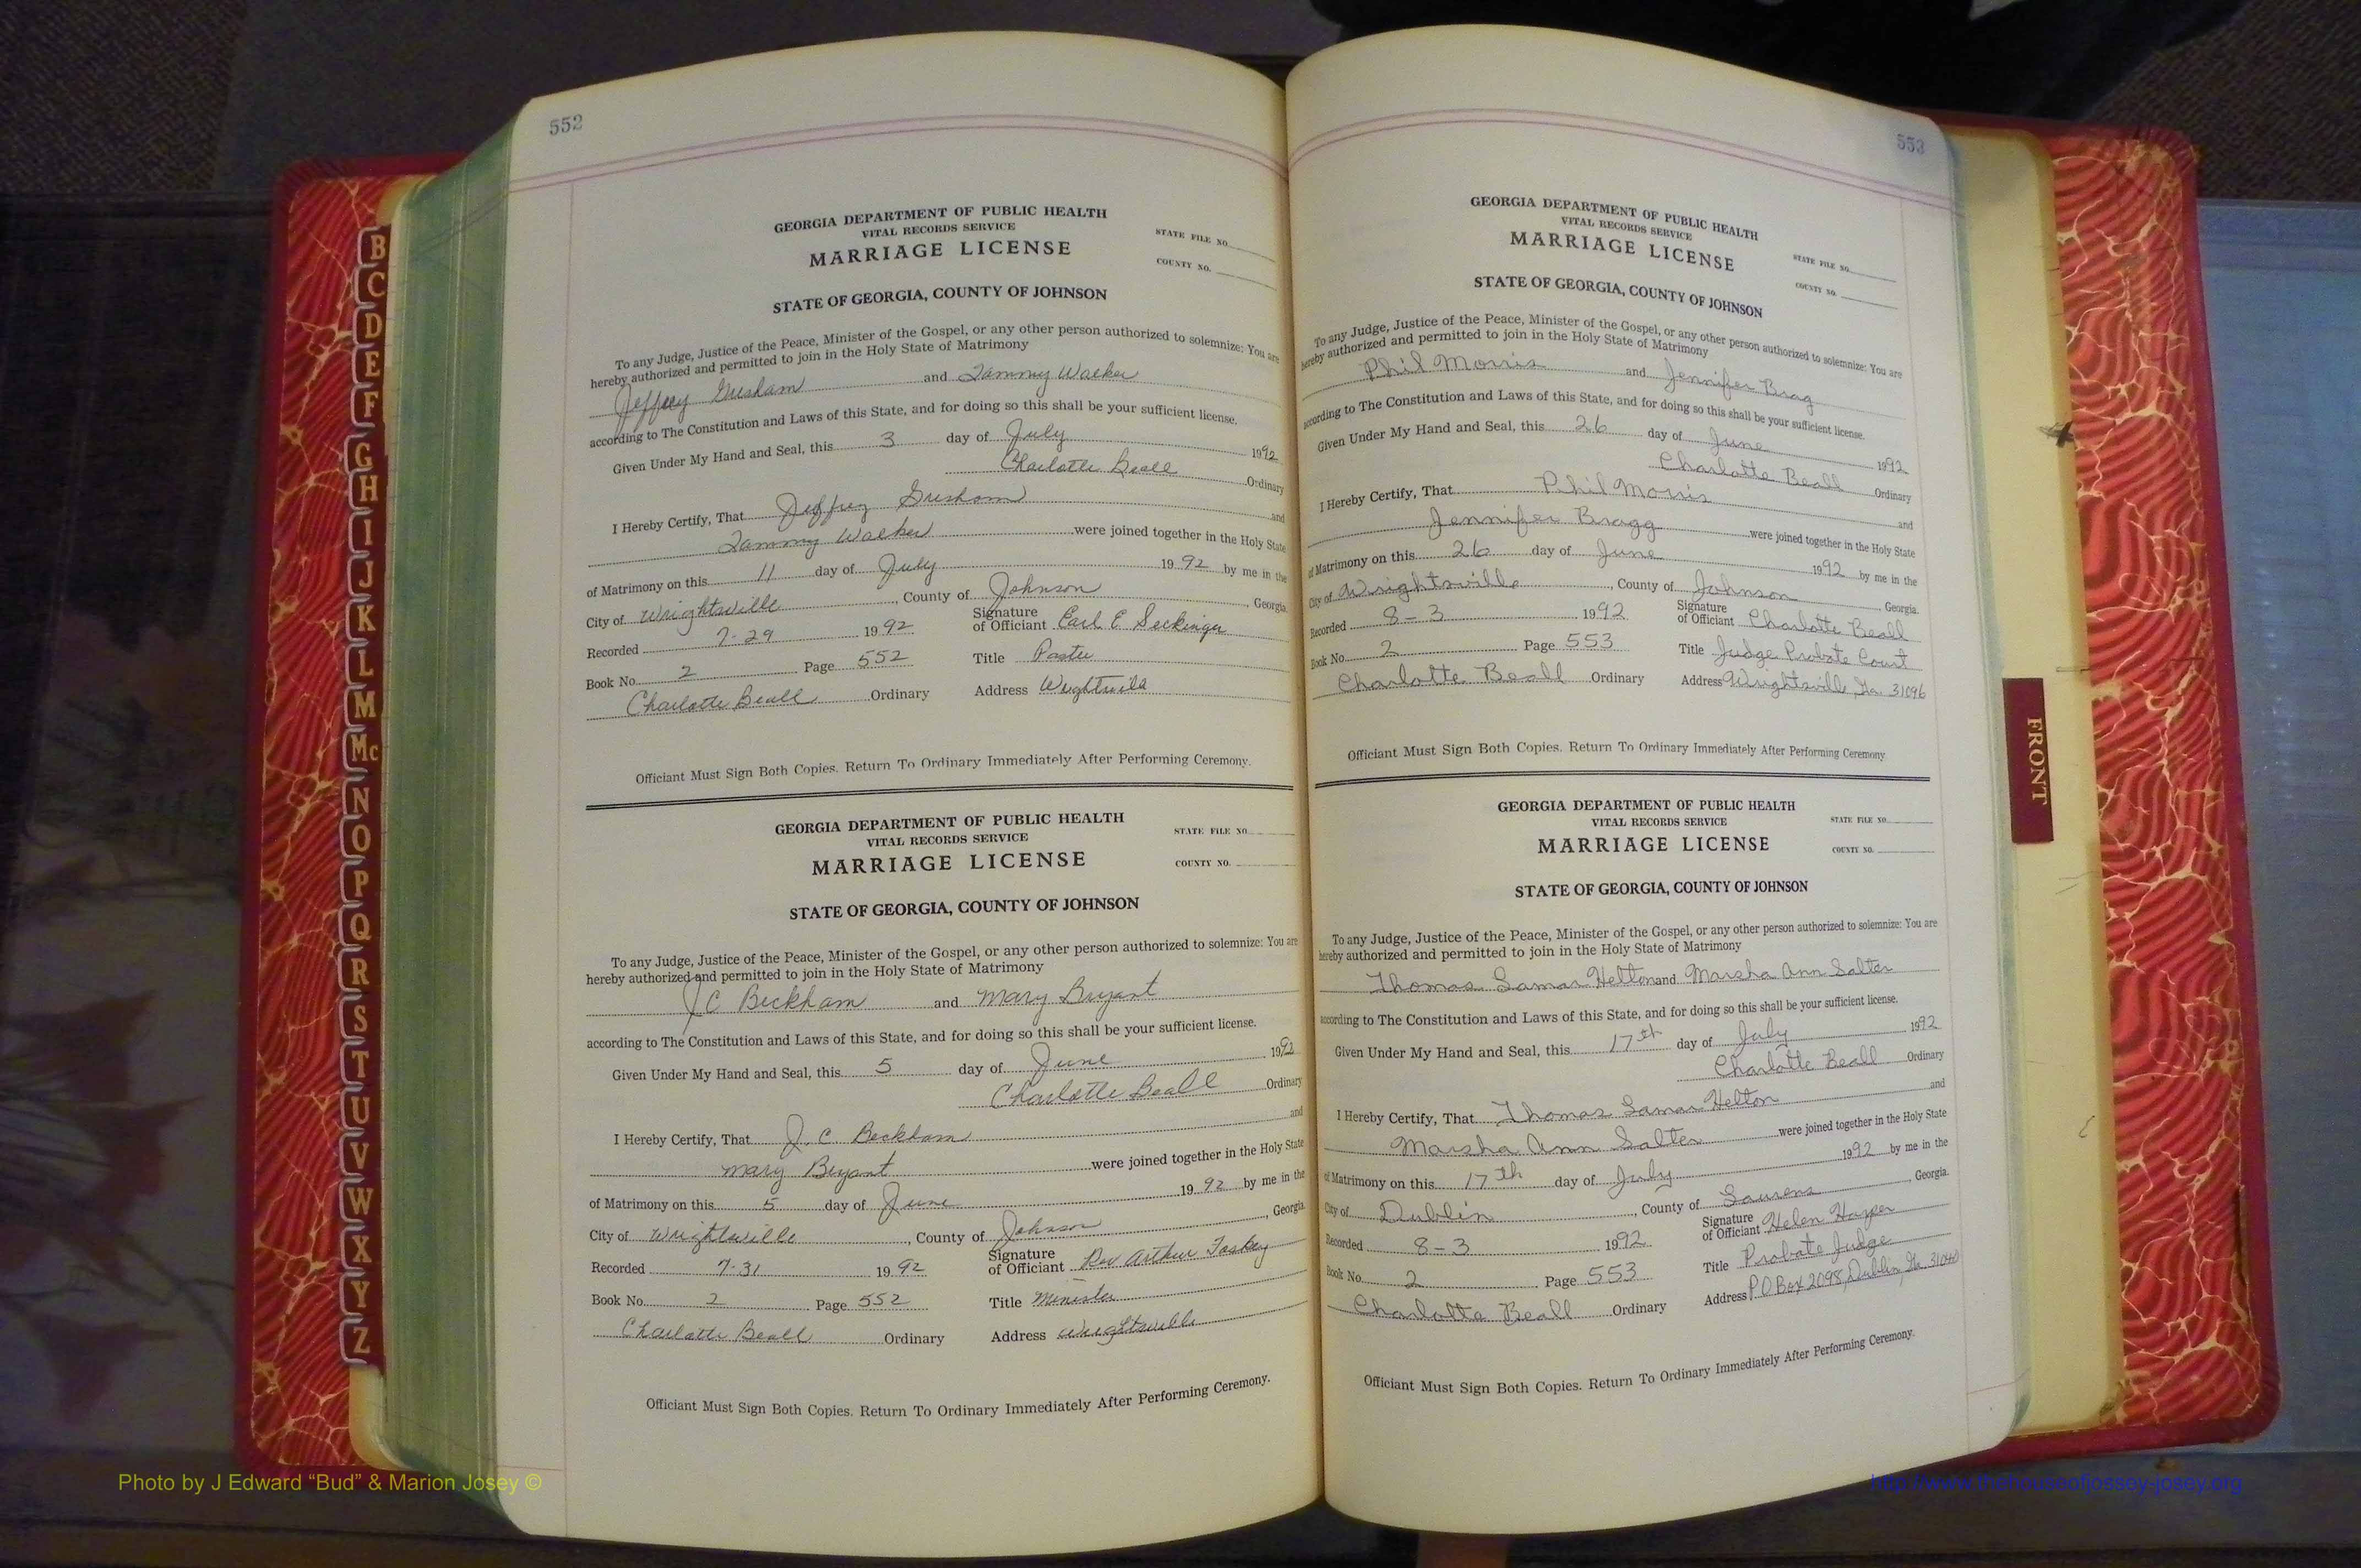 552
GEORGIA DEPARTMENT OF PUBLIC HEALTH
VITAL RECORDS SERVICE
MARRIAGE LICENSE
STATE FILE NO.
COUNTY NO.
STATE OF GEORGIA, COUNTY OF JOHNSON
To any Judge, Justice of the Peace, Minister of the Gospel, or any other person authorized to solemnize: You are
hereby authorized and permitted to join in the Holy State of Matrimony
Jeffrey Gresham and Tammy Walker
according to The Constitution and Laws of this State, and for doing so this shall be your sufficient license.
Given Under My Hand and Seal, this 3 day of July 1992
Charlotte Beall Ordinary
I Hereby Certify, That Jeffrey Gresham and
Tammy Walker were joined together in the Holy State
of Matrimony on this 11 day of July 1992 by me in the
City of Wrightsville, County of Johnson, Georgia.
Recorded 7-29 1992 Signature of Officiant Earl E Seckinger
Book No. 2 Page 552 Title Pastor
Charlotte Beall Ordinary Address
Officiant Must Sign Both Copies. Return To Ordinary Immediately After Performing Ceremony.
GEORGIA DEPARTMENT OF PUBLIC HEALTH
VITAL RECORDS SERVICE
MARRIAGE LICENSE
STATE FILE NO.
COUNTY NO.
STATE OF GEORGIA, COUNTY OF JOHNSON
To any Judge, Justice of the Peace, Minister of the Gospel, or any other person authorized to solemnize: You are
hereby authorized and permitted to join in the Holy State of Matrimony
J C Beckham and Mary Bryant
according to The Constitution and Laws of this State, and for doing so this shall be your sufficient license.
Given Under My Hand and Seal, this 5 day of June 1992
Charlotte Beall Ordinary
I Hereby Certify, That J. C. Beckham and
Mary Bryant were joined together in the Holy State
of Matrimony on this 5 day of June 1992 by me in the
City of Wrightsville, County of Johnson, Georgia.
Recorded 7-31 1992 Signature of Officiant Rev Arthur
Book No. 2 Page 552 Title Minister
Charlotte Beall Ordinary Address Wrightsville
Officiant Must Sign Both Copies. Return To Ordinary Immediately After Performing Ceremony.
553
GEORGIA DEPARTMENT OF PUBLIC HEALTH
VITAL RECORDS SERVICE
MARRIAGE LICENSE
STATE FILE NO.
COUNTY NO.
STATE OF GEORGIA, COUNTY OF JOHNSON
To any Judge, Justice of the Peace, Minister of the Gospel, or any other person authorized to solemnize: You are
hereby authorized and permitted to join in the Holy State of Matrimony
Phil Morris and Jennifer Brag
according to The Constitution and Laws of this State, and for doing so this shall be your sufficient license.
Given Under My Hand and Seal, this 26 day of June 1992
Charlotte Beall Ordinary
I Hereby Certify, That Phil Morris and
Jennifer Bragg were joined together in the Holy State
of Matrimony on this 26 day of June 1992 by me in the
City of Wrightsville, County of Johnson, Georgia.
Recorded 8-3 1992 Signature of Officiant Charlotte Beall
Book No. 2 Page 553 Title Judge Probate Court
Charlotte Beall Ordinary Address Wrightsville, Ga. 31096
Officiant Must Sign Both Copies. Return To Ordinary Immediately After Performing Ceremony
GEORGIA DEPARTMENT OF PUBLIC HEALTH
VITAL RECORDS SERVICE
MARRIAGE LICENSE
STATE FILE NO.
COUNTY NO.
STATE OF GEORGIA, COUNTY OF JOHNSON
To any Judge, Justice of the Peace, Minister of the Gospel, or any other person authorized to solemnize: You are
hereby authorized and permitted to join in the Holy State of Matrimony
Thomas Lamar Helton and Marsha Ann Salter
according to The Constitution and Laws of this State, and for doing so this shall be your sufficient license.
Given Under My Hand and Seal, this 17th day of July 1992
Charlotte Beall Ordinary
I Hereby Certify, That Thomas Lamar Helton and
Marsha Ann Salter were joined together in the Holy State
of Matrimony on this 17th day of July 1992 by me in the
City of Dublin, County of Laurens, Georgia.
Recorded 8-3 1992 Signature of Officiant Helen Harper
Book No. 2 Page 553 Title Probate Judge
Charlotte Beall Ordinary Address P O Box 2098, Dublin, Ga. 31040
Officiant Must Sign Both Copies. Return To Ordinary Immediately After Performing Ceremony.
B
C
D
E
F
G
H
I
J
K
L
M
Mc
N
O
P
Q
R
S
T
U
V
W
X
Y
Z
FRONT
Photo by J Edward “Bud” & Marion Josey ©
http://www.thehouseofjossey-josey.org